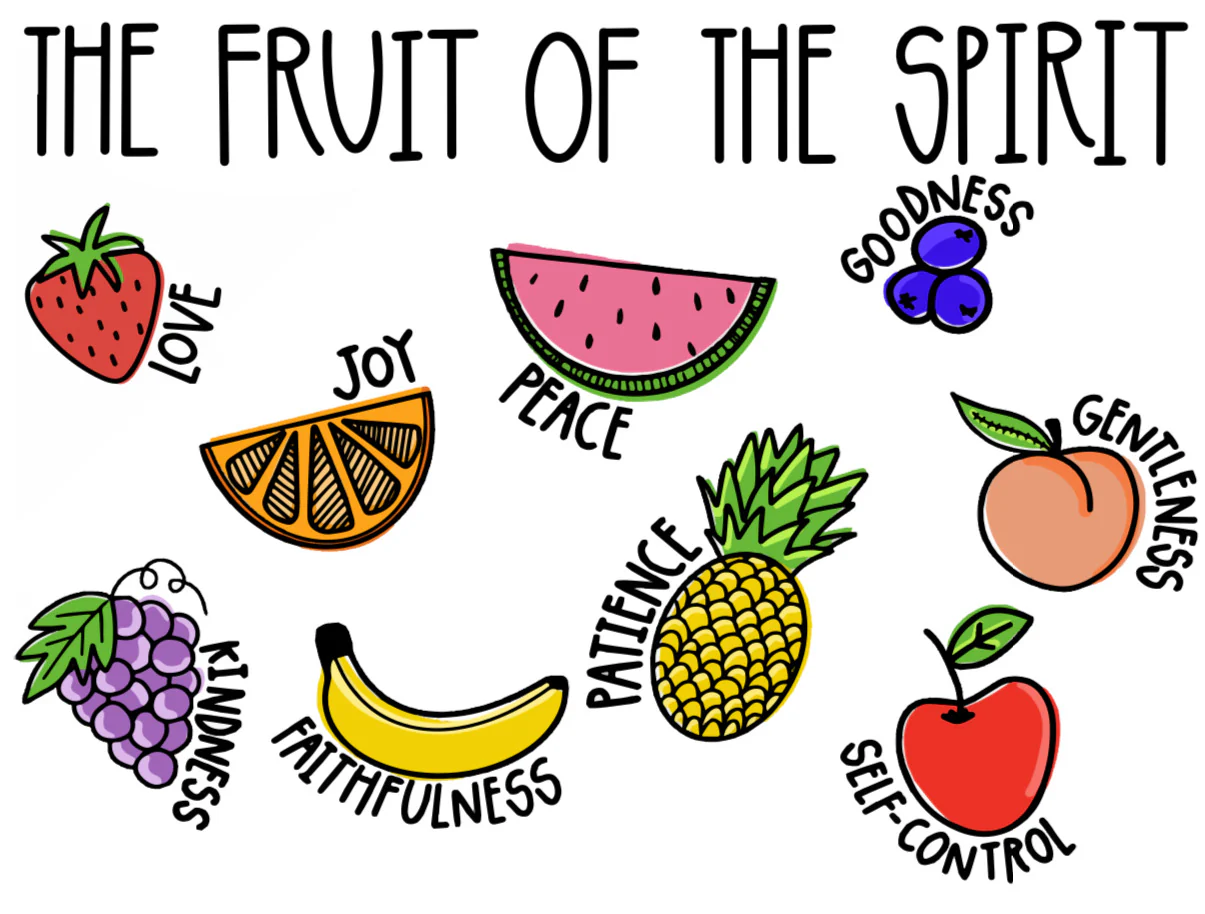 THE FRUIT OF THE SPIRIT
LOVE
JOY
PEACE
GOODNESS
GENTLENESS
PATIENCE
KINDNESS
FAITHFULNESS
SELF-CONTROL